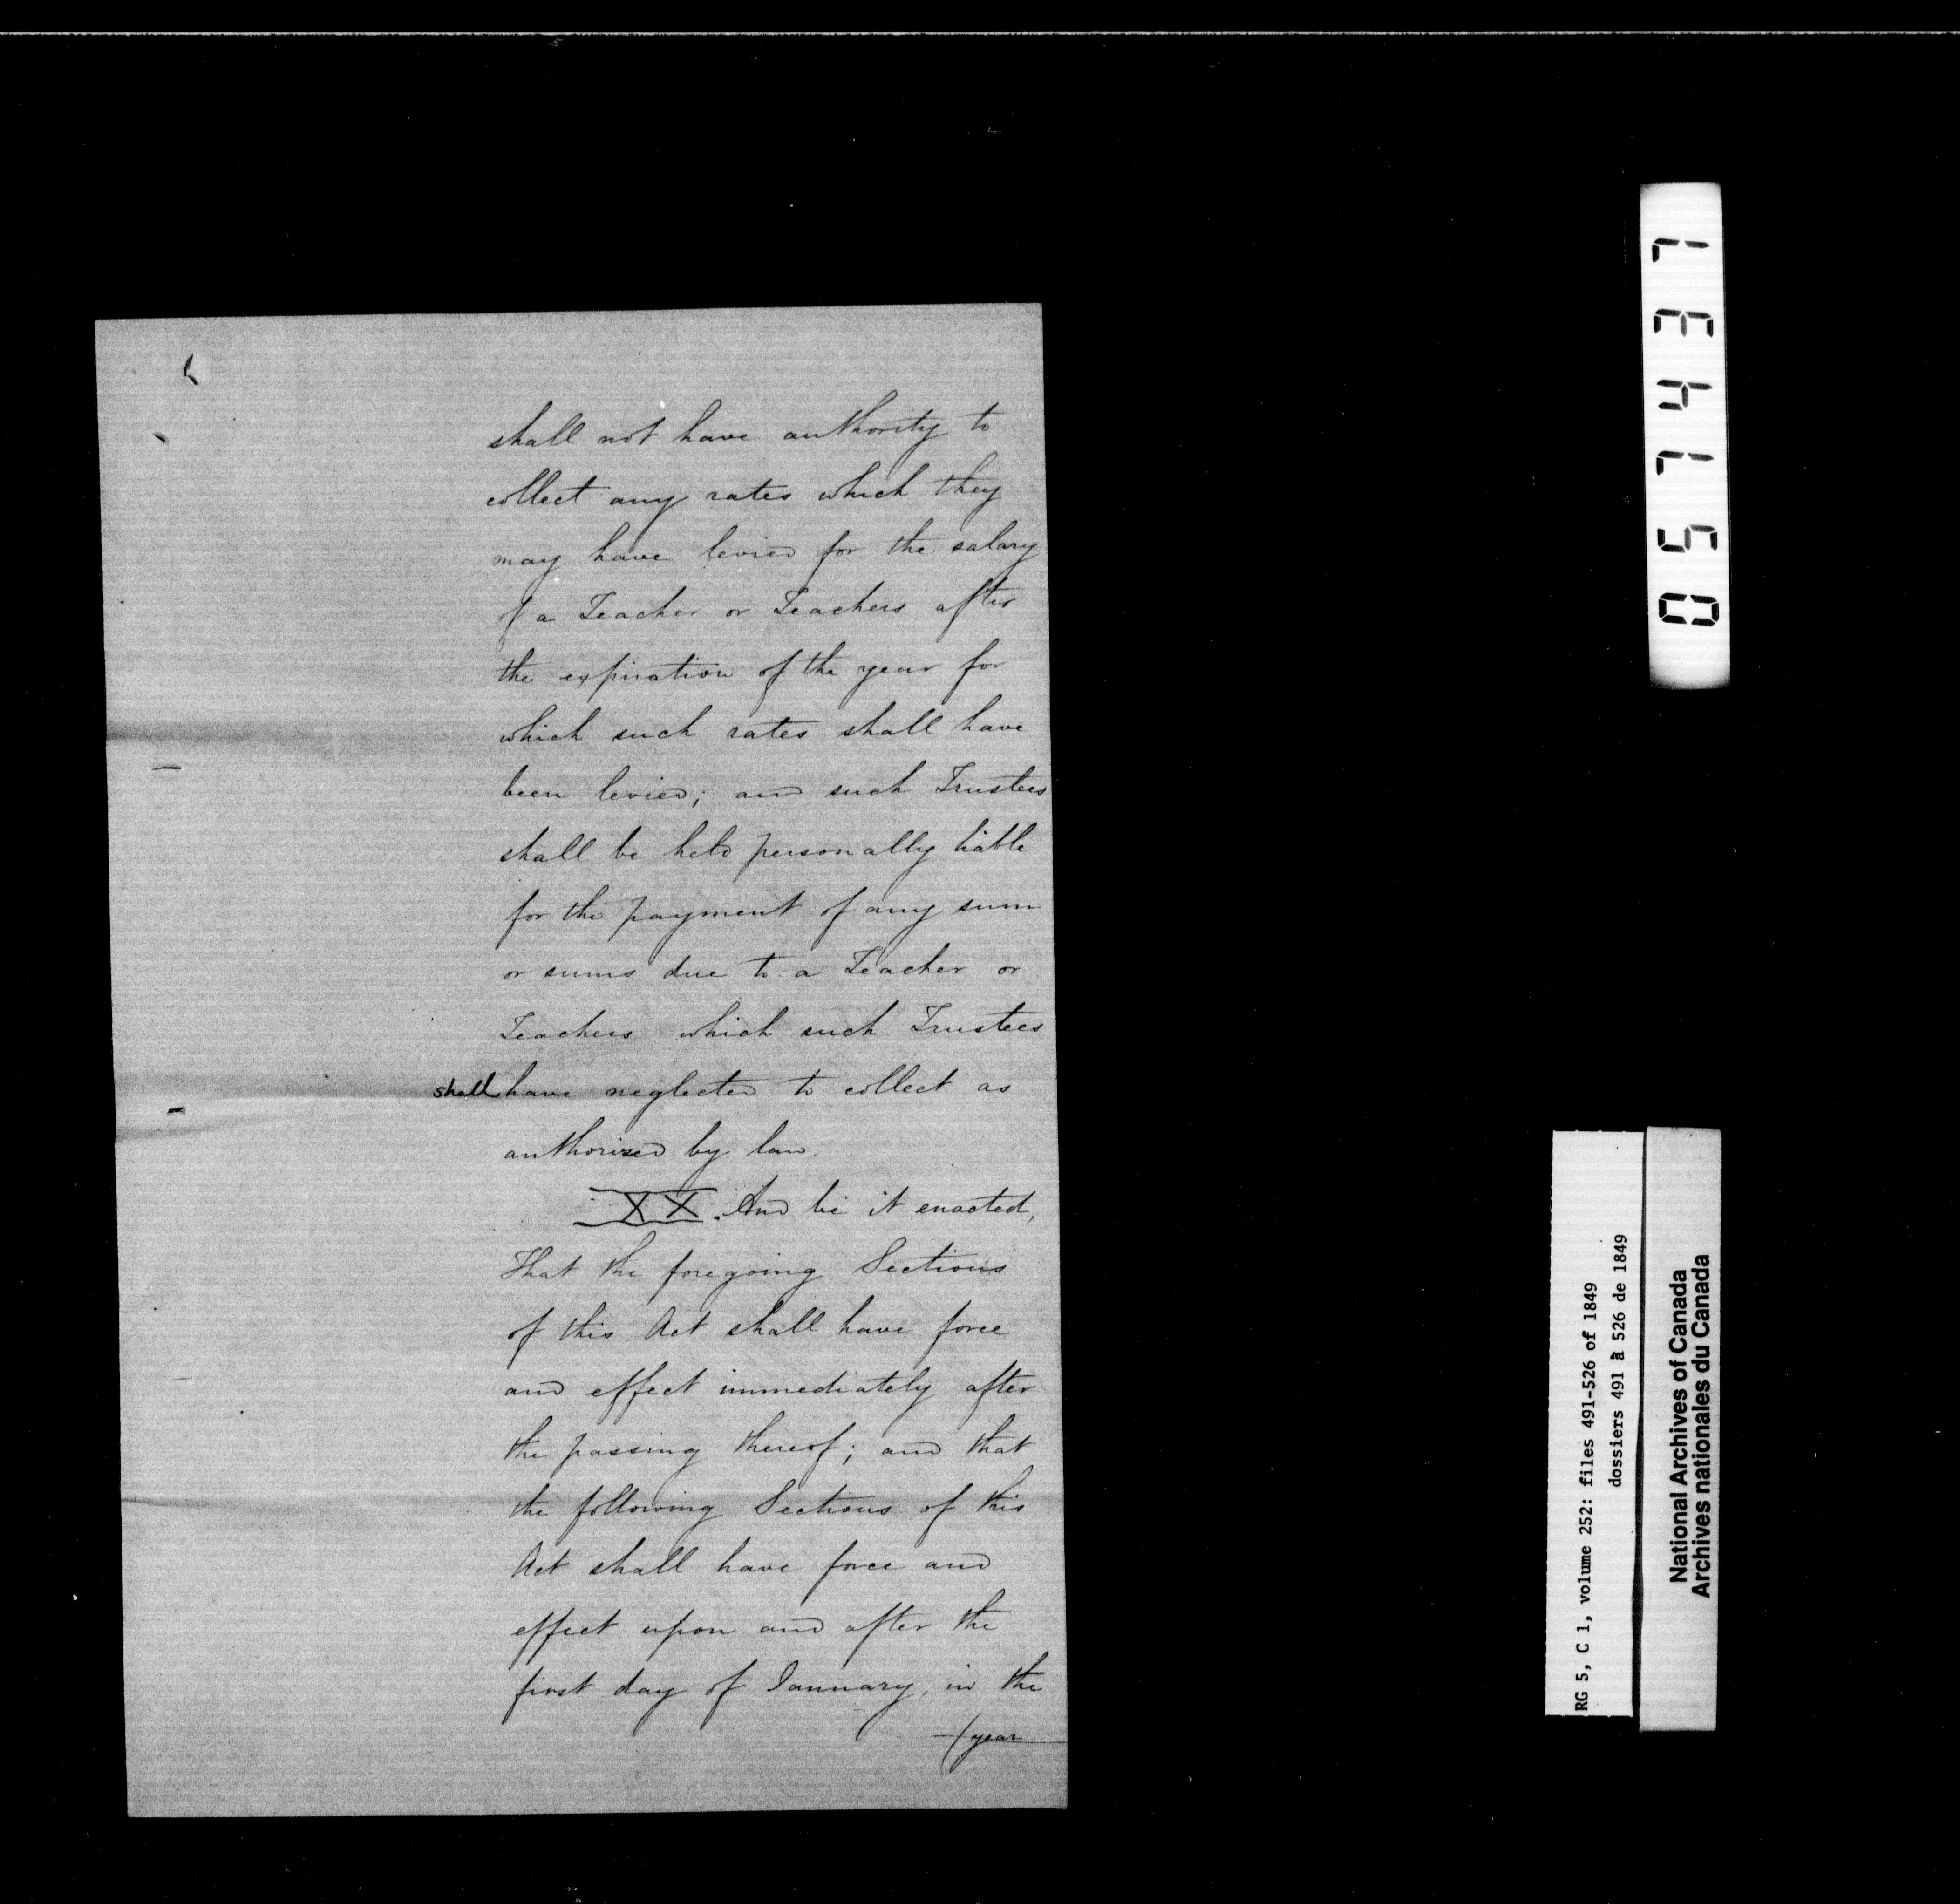 shall not have authority to
collect any rates which they
may have levied for the salary
of a Teacher or Teachers after
the expiration of the year for
which such rates shall have
been levied; and such Trustees
shall be held personally liable
for the payment of any sum
or sums due to a Teacher or
Teachers which such Trustees
shall have neglected to collect as
authorized by law.
XX. And be it enacted,
That the foregoing Sections
of this Act shall have force
and effect immediately after
the passing thereof; and that
the following Sections of this
Act shall have force and
effect upon and after the
first day of January, in the
(year
051437
RG 5, C 1, volume 252: files 491-526 of 1849
dossiers 491 à 526 de 1849
National Archives of Canada
Archives nationales du Canada